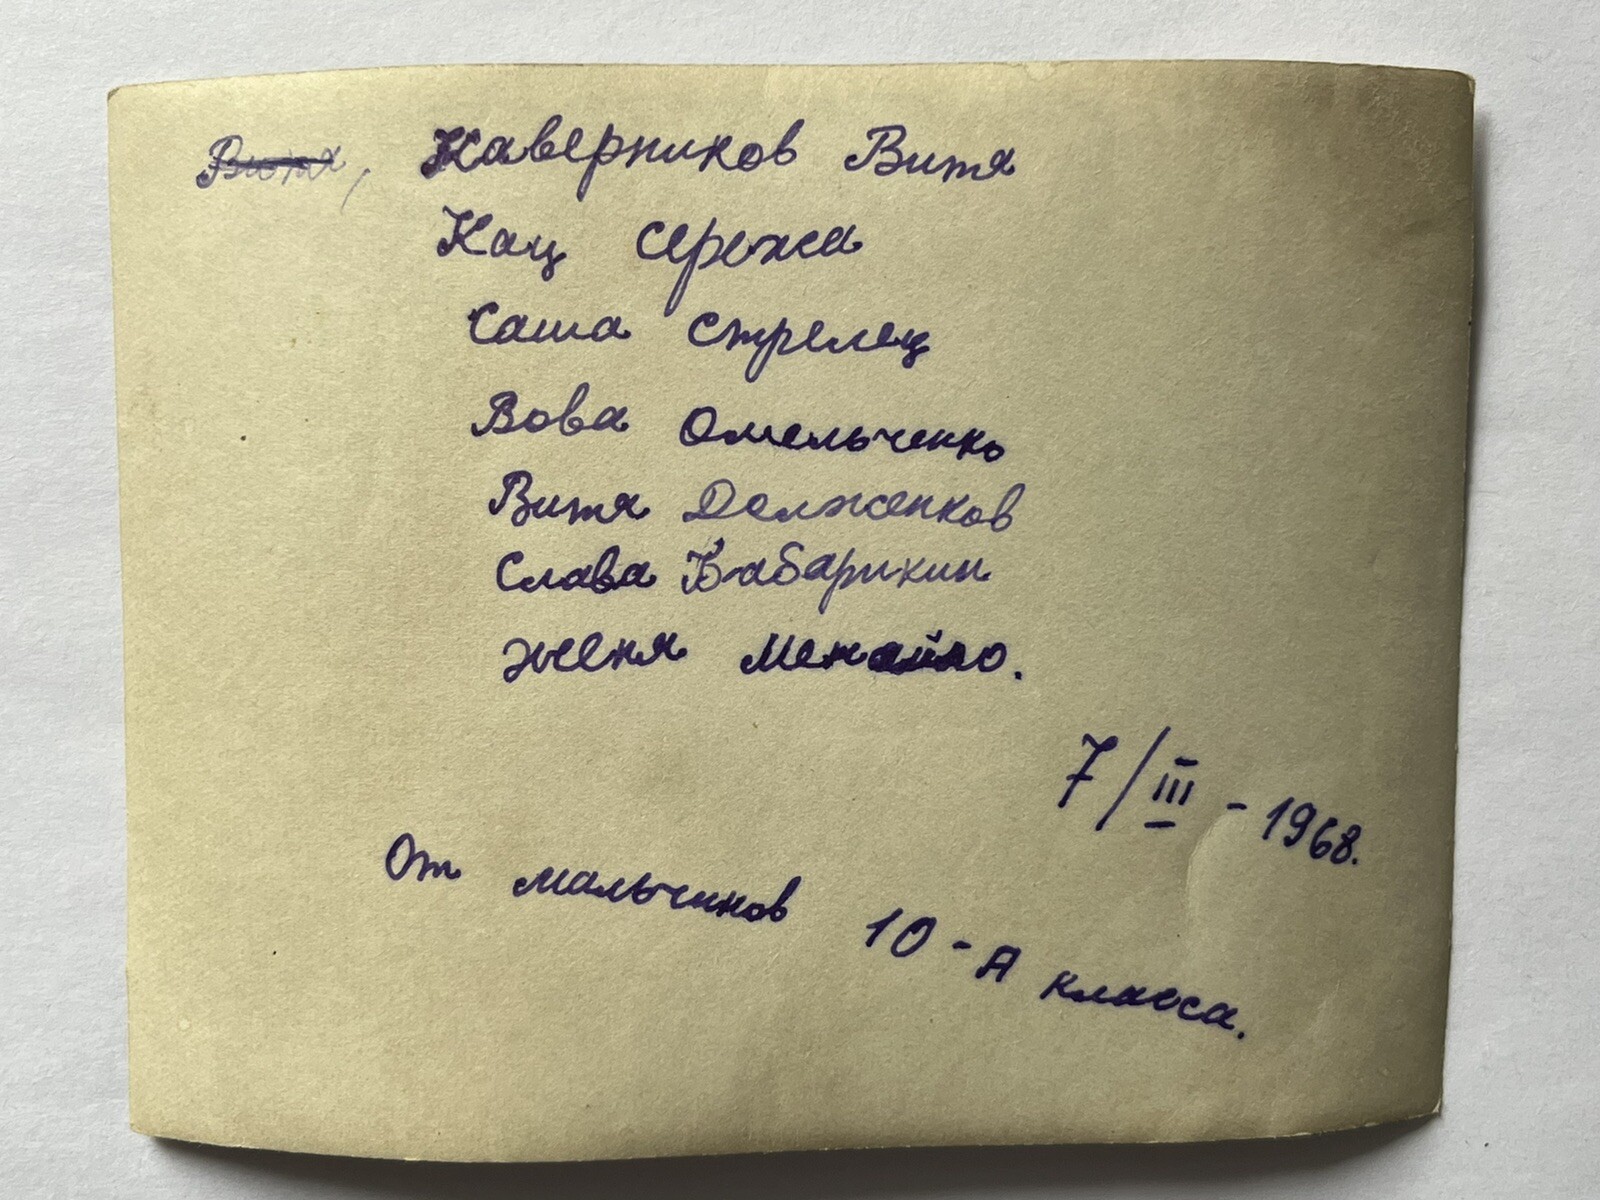 Витя, Каверников Витя
Кац Сережа
Саша Стрелец
Вова Омельченко
Витя Долженков
Слава Кабарихин
Женя Менайло.
7/III - 1968.
От мальчиков 10-А класса.